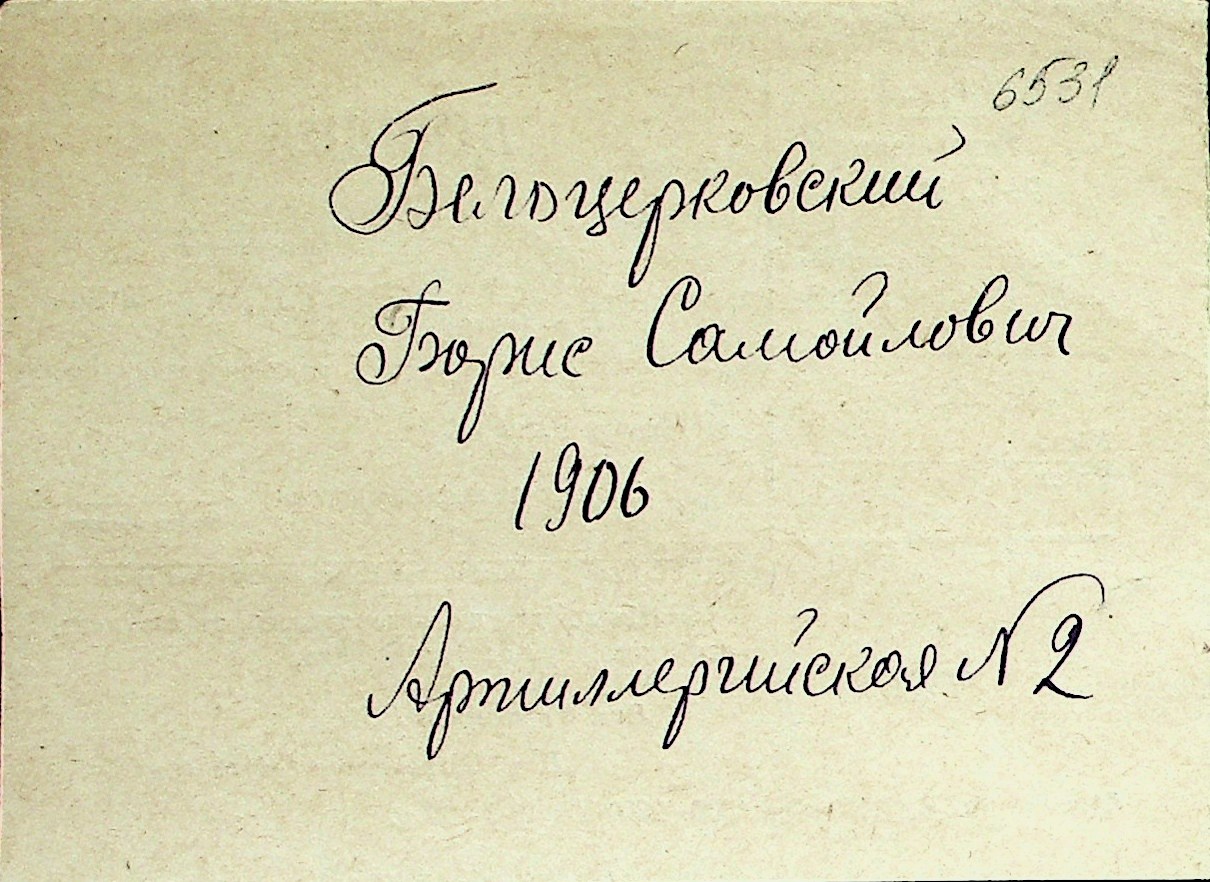 6531
Бельцерковский
Борис Самойлович
1906
Артиллерийская N 2